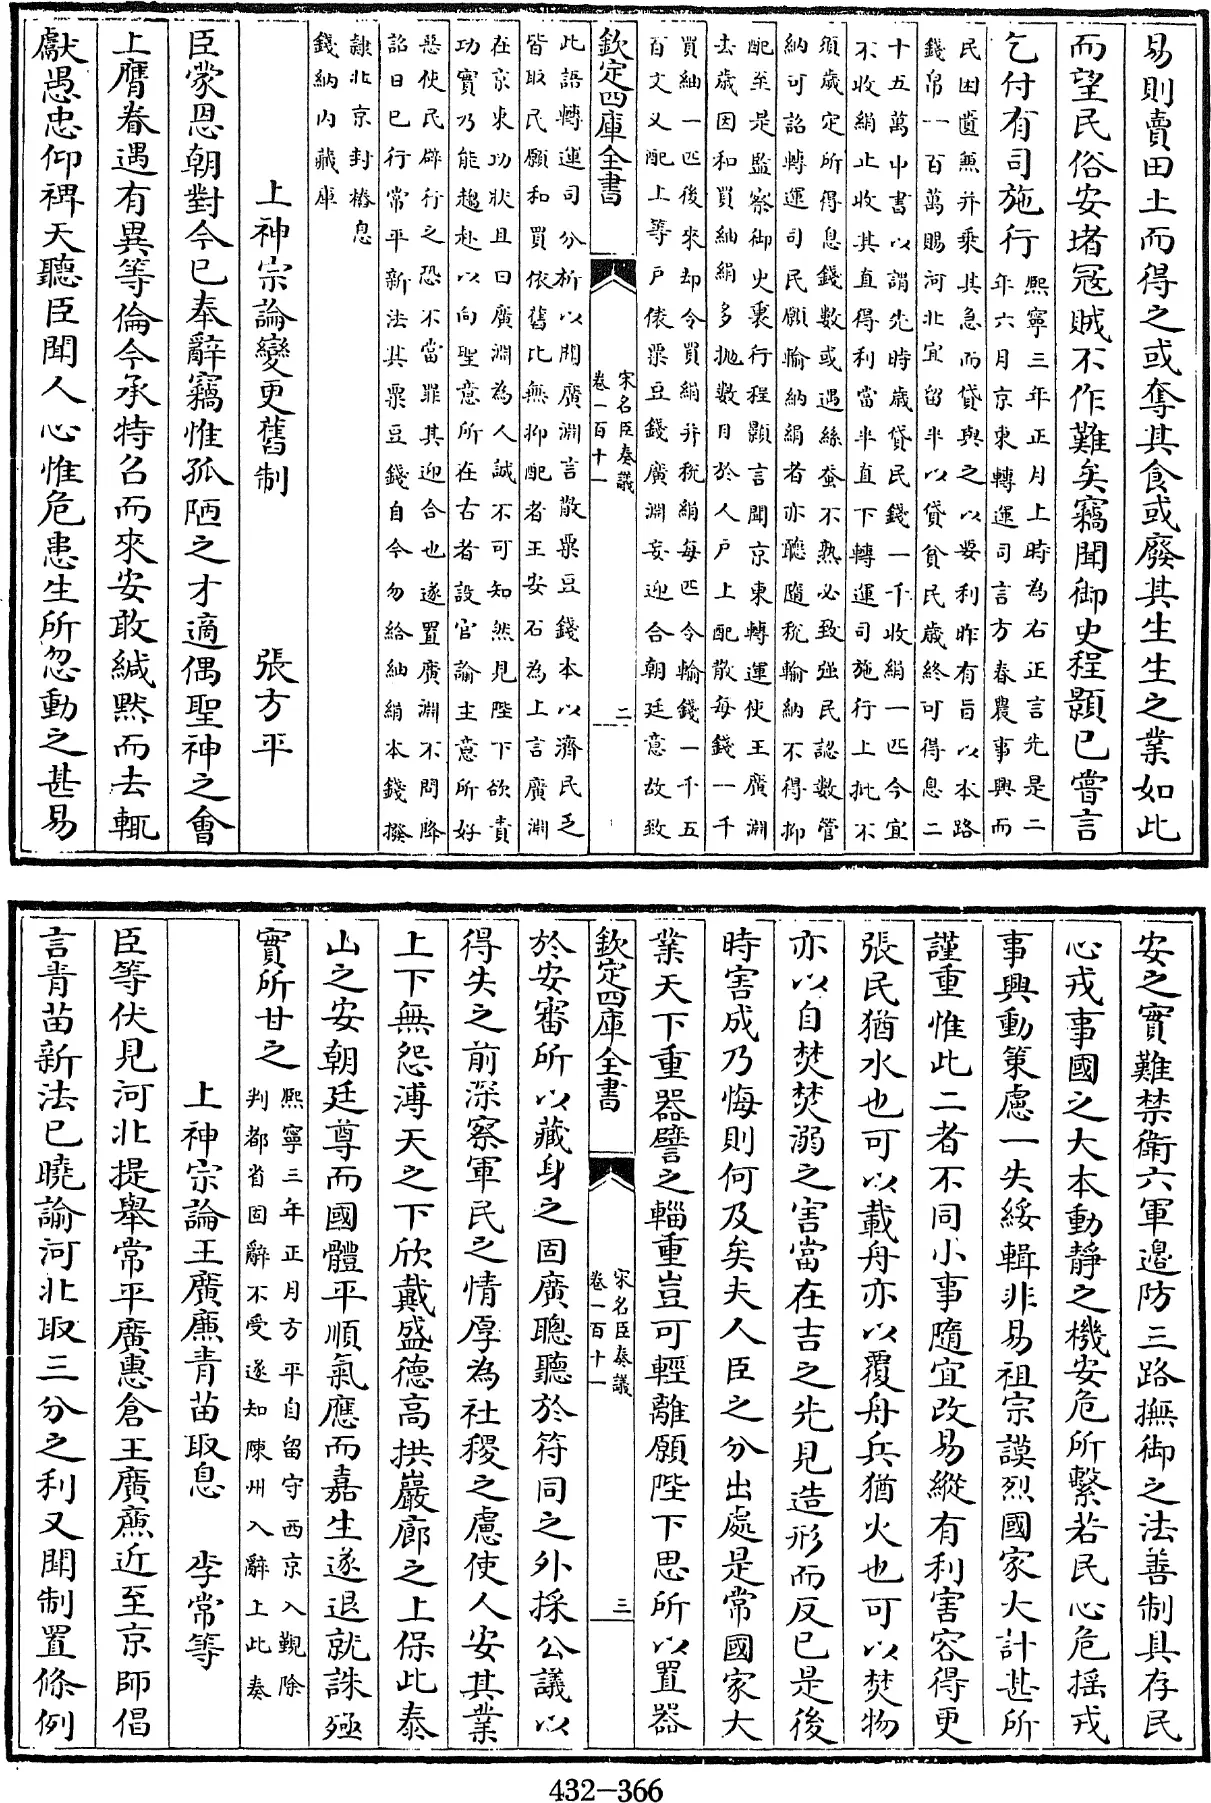 易則賣田土而得之或奪其食或廢其生生之業如此
而望民俗安堵冦賊不作難矣竊聞御史程顥已嘗言
乞付有司施行
熙寧三年正月上時為右正言先是二
年六月京東轉運司言方春農事興而
民困匱兼并乗其急而貸與之以要利昨有旨以本路
錢帛一百萬賜河北宜留半以貸貧民歲終可得息二
十五萬中書以謂先時歲貸民錢一千收絹一匹今宜
不收絹止收其直得利當半直下轉運司施行上批不
須歲定所得息錢數或遇絲蚕不熟必致强民認數管
納可詔轉運司民願輸納絹者亦聽隨稅輸納不得抑
配至是監察御史裏行程顥言聞京東轉運使王廣淵
去歲因和買紬絹多抛數目於人戶上配散每錢一千
買紬一匹後來却令買絹并稅絹每匹令輸錢一千五
百文又配上等戶俵粟豆錢廣淵妄迎合朝廷意故致
欽定四庫全書
宋名臣奏議
卷一百十一
二
此語轉運司分析以聞廣淵言散粟豆錢本以濟民乏
皆取民願和買依舊比無抑配者王安石為上言廣淵
在京東功狀且曰廣淵為人誠不可知然見陛下欲責
功實乃能趨赴以向聖意所在古者設官諭主意所好
惡使民辟行之恐不當罪其迎合也遂置廣淵不問降
詔曰已行常平新法其粟豆錢自今勿給紬絹本錢撥
隷北京封樁息
錢納内藏庫
上神宗論變更舊制 張方平
臣蒙恩朝對今已奉辭竊惟孤陋之才適偶聖神之會
上膺眷遇有異等倫今承特召而來安敢緘黙而去輒
獻愚忠仰裨天聽臣聞人心惟危患生所忽動之甚易
安之實難禁衛六軍邉防三路撫御之法善制具存民
心戎事國之大本動靜之機安危所繫若民心危揺戎
事興動策慮一失綏輯非易祖宗謨烈國家大計甚所
謹重惟此二者不同小事隨宜改易縱有利害容得更
張民猶水也可以載舟亦以覆舟兵猶火也可以焚物
亦以自焚焚溺之害當在吉之先見造形而反已是後
時害成乃悔則何及矣夫人臣之分出處是常國家大
業天下重器譬之輜重豈可輕離願陛下思所以置器
欽定四庫全書
宋名臣奏議
卷一百十一
三
於安審所以藏身之固廣聰聽於符同之外採公議以
得失之前深察軍民之情厚為社稷之慮使人安其業
上下無怨溥天之下欣戴盛德高拱巖廊之上保此泰
山之安朝廷尊而國體平順氣應而嘉生遂退就誅殛
實所甘之
熙寧三年正月方平自留守西京入覲除
判都省固辭不受遂知陳州入辭上此奏
上神宗論王廣廉青苗取息 李常等
臣等伏見河北提舉常平廣惠倉王廣廉近至京師倡
言青苗新法已曉諭河北取三分之利又聞制置條例
432-366